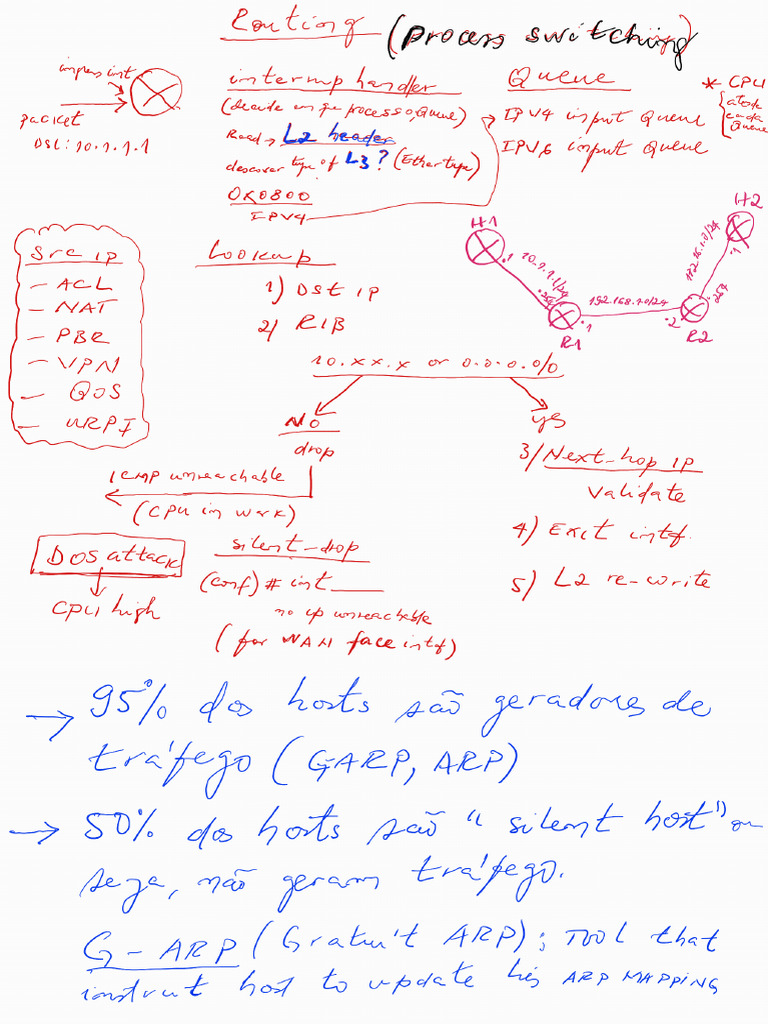 Routing (process switching)
input int
packet
DSt: 10.1.1.1
interrup handler
(decide unique processo, Queue)
Read → L2 header
descover type of L3? (Ethertype)
0x0800
IPV4
Queue
IPV4 input Queue
IPV6 input Queue
* CPU
atende
cada
Queue
H1
.1
10.1.1.1/24
.254
R1
.1
192.168.1.0/24
.2
R2
.254
172.16.1.0/24
.1
H2
Src ip
- ACL
- NAT
- PBR
- VPN
- QOS
- URPF
Lookup
1) Dst ip
2) RIB
10.xx.x or 0.0.0.0/0
NO
drop
ICMP unreachable
(CPU in work)
DOS attack
CPU high
silent-drop
(conf) # int ____
no ip unreachable
(for WAN face intf)
yes
3/ Next-hop ip
validate
4) Exit intf.
5) L2 re-write
→ 95% dos hosts são geradores de
tráfego (GARP, ARP)
→ 50% dos hosts são "silent host" ou
seja, não geram tráfego.
G-ARP (Gratui't ARP); TOOL that
instrut host to update his ARP MAPPING